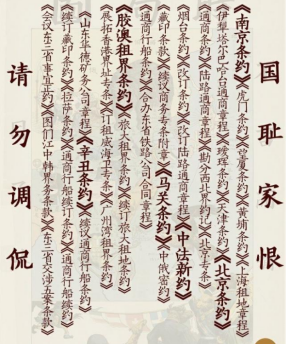 国耻家恨
《南京条约》《虎门条约》《望夏条约》《黄埔条约》《上海租地章程》
《伊犁塔尔巴哈台通商章程》《瑷珲条约》《天津条约》《北京条约》
《通商条约》《陆路通商章程》《勘分西北界约记》《北京专条》
《烟台条约》《改订条约》《改订陆路通商章程》《中法新约》
《藏印条款》《续议商务专条附章》《马关条约》《中俄密约》
《通商行船条约》《合办东省铁路公司合同章程》
《胶澳租界条约》《旅大租界条约》《续订旅大租地条约》
《展拓香港界址专条》《订租威海卫专条》《广州湾租界条约》
《山东华德矿务公司章程》《辛丑条约》《续议通商行船条约》
《续订藏印条约》《拉萨条约》《通商行船续订条约》《通商行船续约》
《会议东三省事宜正约》《图们江中韩界务条款》《东三省交涉五案条款》
请勿调侃